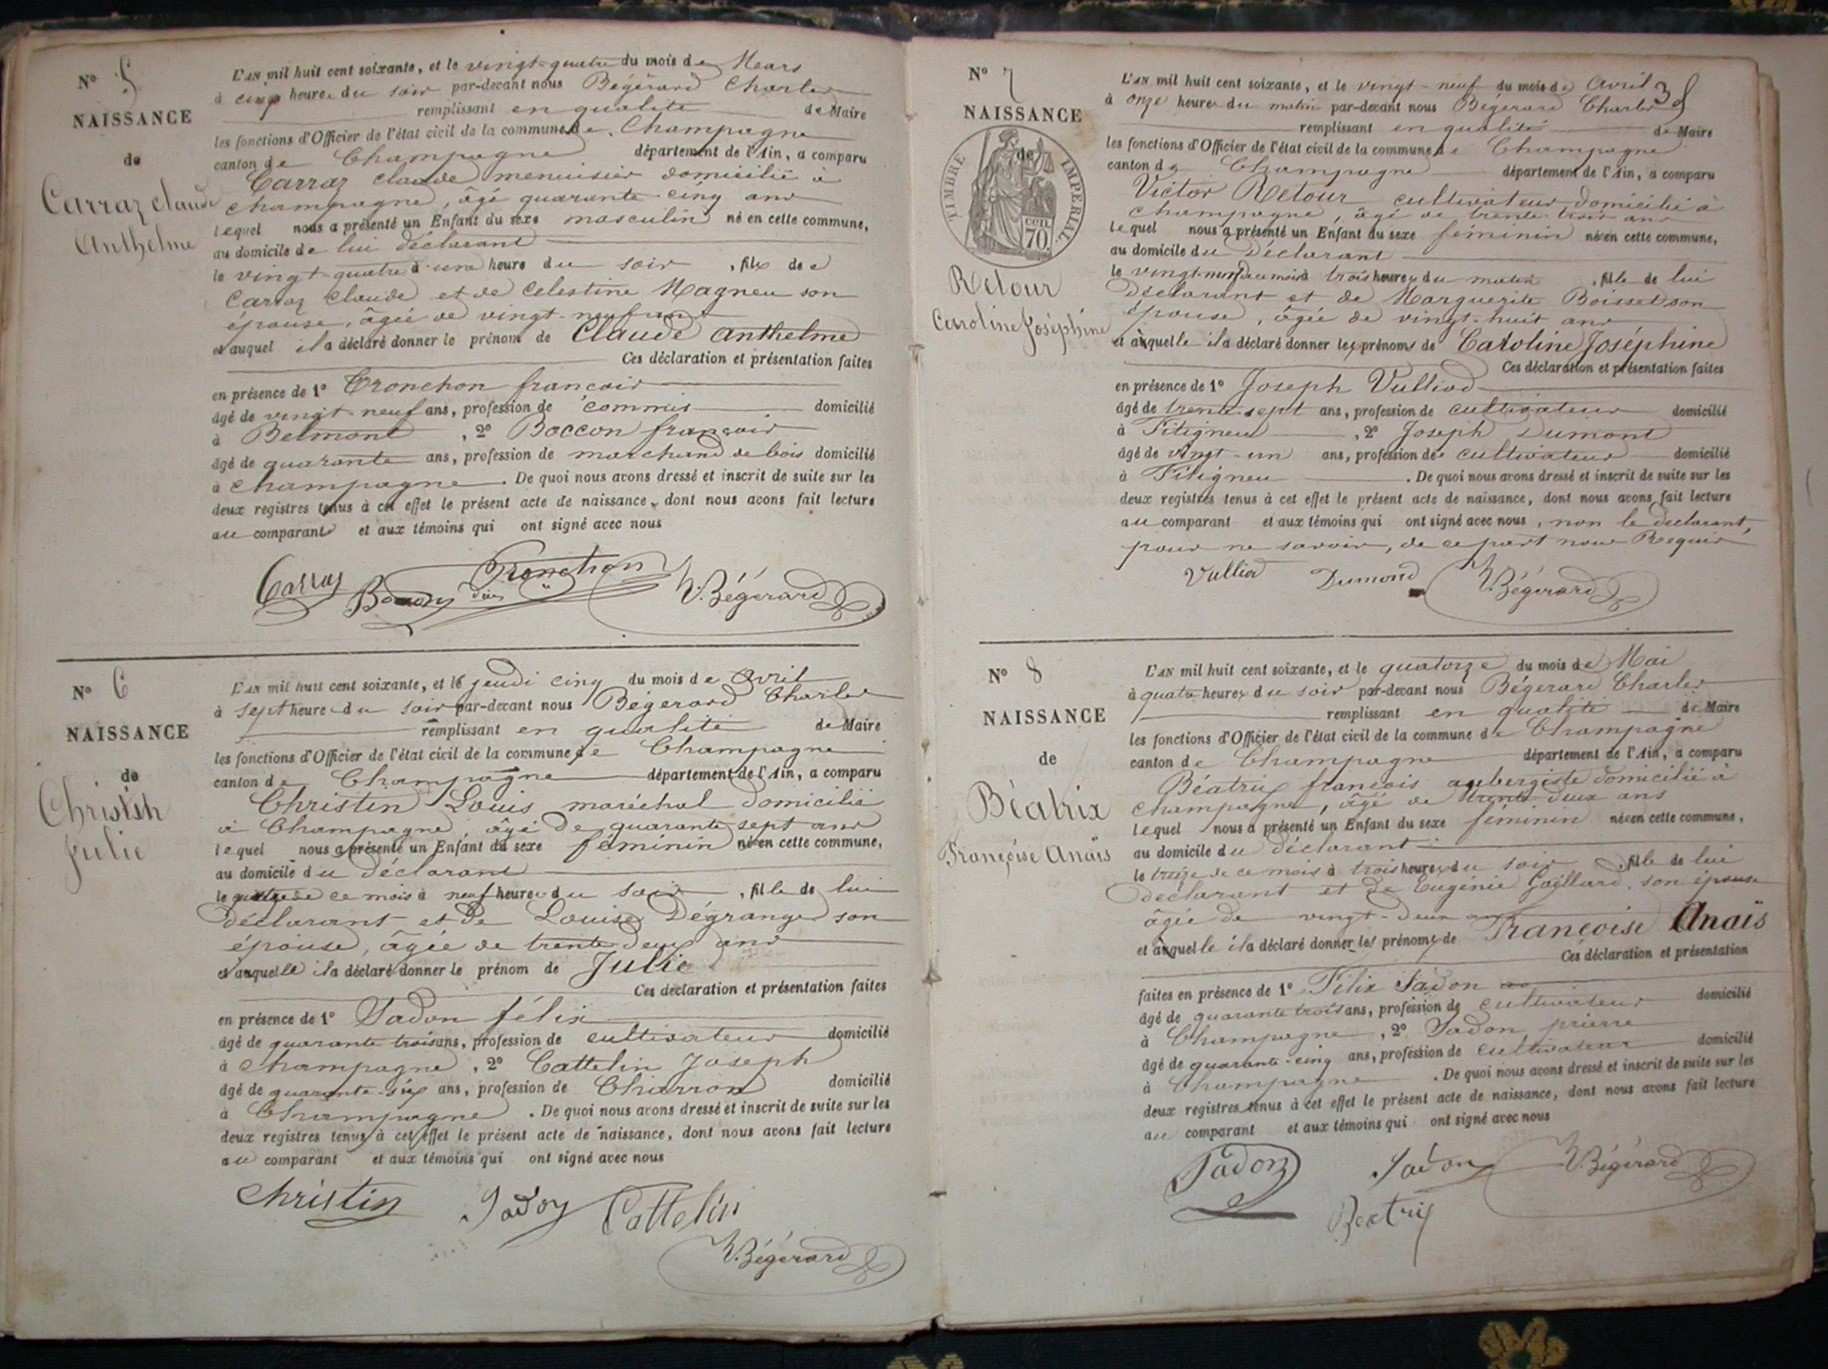 N° 5
NAISSANCE
de
Carraz claude
Anthelme
L'AN mil huit cent soixante, et le vingt-quatre du mois de Mars
à cinq heures du soir par-devant nous Bégérard Charles
remplissant en qualité de Maire
les fonctions d'Officier de l'état civil de la commune de Champagne
canton de Champagne département de l'Ain, a comparu
Carraz claude menuisier domicilié à
champagne, âgé quarante cinq ans
lequel nous a présenté un Enfant du sexe masculin né en cette commune,
au domicile de lui déclarant
le vingt quatre à une heure du soir, fils de
Carraz Claude et de Celestine Magneu son
épouse, âgée de vingt-neuf ans
et auquel il a déclaré donner le prénom de Claude Anthelme
Ces déclaration et présentation faites
en présence de 1° Tronchon francois
âgé de vingt neuf ans, profession de commis domicilié
à Belmont, 2° Boccon françois
âgé de quarante ans, profession de marchand de bois domicilié
à champagne. De quoi nous avons dressé et inscrit de suite sur les
deux registres tenus à cet effet le présent acte de naissance, dont nous avons fait lecture
au comparant et aux témoins qui ont signé avec nous
Carraz Tronchon Bégérard
N° 6
NAISSANCE
de
Christin
Julie
L'AN mil huit cent soixante, et le jeudi cinq du mois de avril
à sept heures du soir par-devant nous Bégérard Charles
remplissant en qualité de Maire
les fonctions d'Officier de l'état civil de la commune de Champagne
canton de Champagne département de l'Ain, a comparu
Christin Louis maréchal domicilié
à Champagne, âgé de quarante sept ans
lequel nous a présenté un Enfant du sexe féminin né en cette commune,
au domicile du déclarant
le quatre de ce mois à neuf heures du soir, fille de lui
déclarant et de Louise Dégranges son
épouse, âgée de trente deux ans
et auquelle il a déclaré donner le prénom de Julie
Ces déclaration et présentation faites
en présence de 1° Jadon félix
âgé de quarante trois ans, profession de cultivateur domicilié
à champagne, 2° Cattelin Joseph
âgé de quarante-six ans, profession de Charron domicilié
à Champagne. De quoi nous avons dressé et inscrit de suite sur les
deux registres tenus à cet effet le présent acte de naissance, dont nous avons fait lecture
au comparant et aux témoins qui ont signé avec nous
Christin Jadon Cattelin
Bégérard
38
N° 7
NAISSANCE
de
TIMBRE IMPÉRIAL
70
Retour
Caroline Joséphine
L'AN mil huit cent soixante, et le vingt-neuf du mois de Avril
à onze heures du matin par-devant nous Bégérard Charles
remplissant en qualité de Maire
les fonctions d'Officier de l'état civil de la commune de Champagne
canton de Champagne département de l'Ain, a comparu
Victor Retour cultivateur domicilié à
champagne, âgé de trente trois ans
lequel nous a présenté un Enfant du sexe féminin né en cette commune,
au domicile du Déclarant
le vingt-neuf du mois à trois heures du matin, fille de lui
déclarant et de Marguerite Boisset son
épouse, âgée de vingt-huit ans
et auquelle il a déclaré donner les prénoms de Caroline Joséphine
Ces déclaration et présentation faites
en présence de 1° Joseph Vulliod
âgé de trente-sept ans, profession de cultivateur domicilié
à Fitigneu, 2° Joseph Dumont
âgé de vingt-un ans, profession de cultivateur domicilié
à Fitigneu. De quoi nous avons dressé et inscrit de suite sur les
deux registres tenus à cet effet le présent acte de naissance, dont nous avons fait lecture
au comparant et aux témoins qui ont signé avec nous, non le declarant,
pour ne savoir, de ce part nous Requis
Vulliod Dumond Bégérard
N° 8
NAISSANCE
de
Béatrix
Françoise Anaïs
L'AN mil huit cent soixante, et le quatorze du mois de Mai
à quatre heures du soir par-devant nous Bégérard Charles
remplissant en qualité de Maire
les fonctions d'Officier de l'état civil de la commune de Champagne
canton de Champagne département de l'Ain, a comparu
Béatrix françois aubergiste domicilié à
champagne, âgé de trente deux ans
lequel nous a présenté un Enfant du sexe féminin né en cette commune,
au domicile du déclarant
le treize de ce mois à trois heures du soir, fille de lui
déclarant et de Eugénie Gaillard, son épouse
âgée de vingt-deux ans
et auquelle il a déclaré donner les prénoms de Françoise Anaïs
Ces déclaration et présentation
faites en présence de 1° Félix Jadon
âgé de quarante trois ans, profession de cultivateur domicilié
à Champagne, 2° Jadon pierre
âgé de quarante-cinq ans, profession de cultivateur domicilié
à Champagne. De quoi nous avons dressé et inscrit de suite sur les
deux registres tenus à cet effet le présent acte de naissance, dont nous avons fait lecture
au comparant et aux témoins qui ont signé avec nous
Jadon Jadon Bégérard
Beatrix